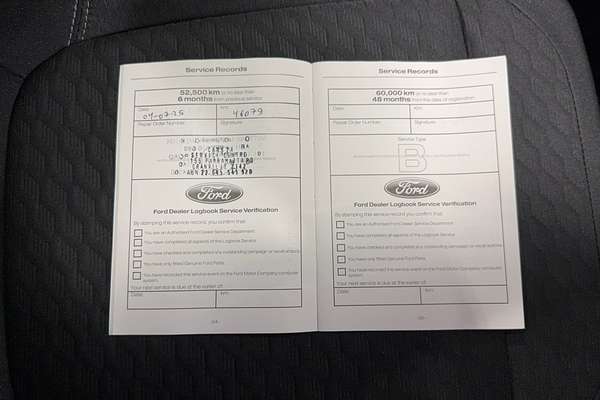 Service Records
52,500 km or no less than
6 months from previous service
Date:
Km:
04-07-25
46079
Repair Order Number:
Signature:
Ford
Ford Dealer Logbook Service Verification
By stamping this service record you confirm that:
You are an Authorised Ford Dealer Service Department.
You have completed all aspects of the Logbook Service.
You have checked and completed any outstanding campaign or recall actions.
You have only fitted Genuine Ford Parts.
You have recorded this service event on the Ford Motor Company computer
system.
Your next service is due at the earlier of:
Date:
Km:
Service Records
60,000 km or no less than
48 months from the date of registration
Date:
Km:
Repair Order Number:
Signature:
Service Type
B
Ford
Ford Dealer Logbook Service Verification
By stamping this service record you confirm that:
You are an Authorised Ford Dealer Service Department.
You have completed all aspects of the Logbook Service.
You have checked and completed any outstanding campaign or recall actions.
You have only fitted Genuine Ford Parts.
You have recorded this service event on the Ford Motor Company computer
system.
Your next service is due at the earlier of:
Date:
Km: